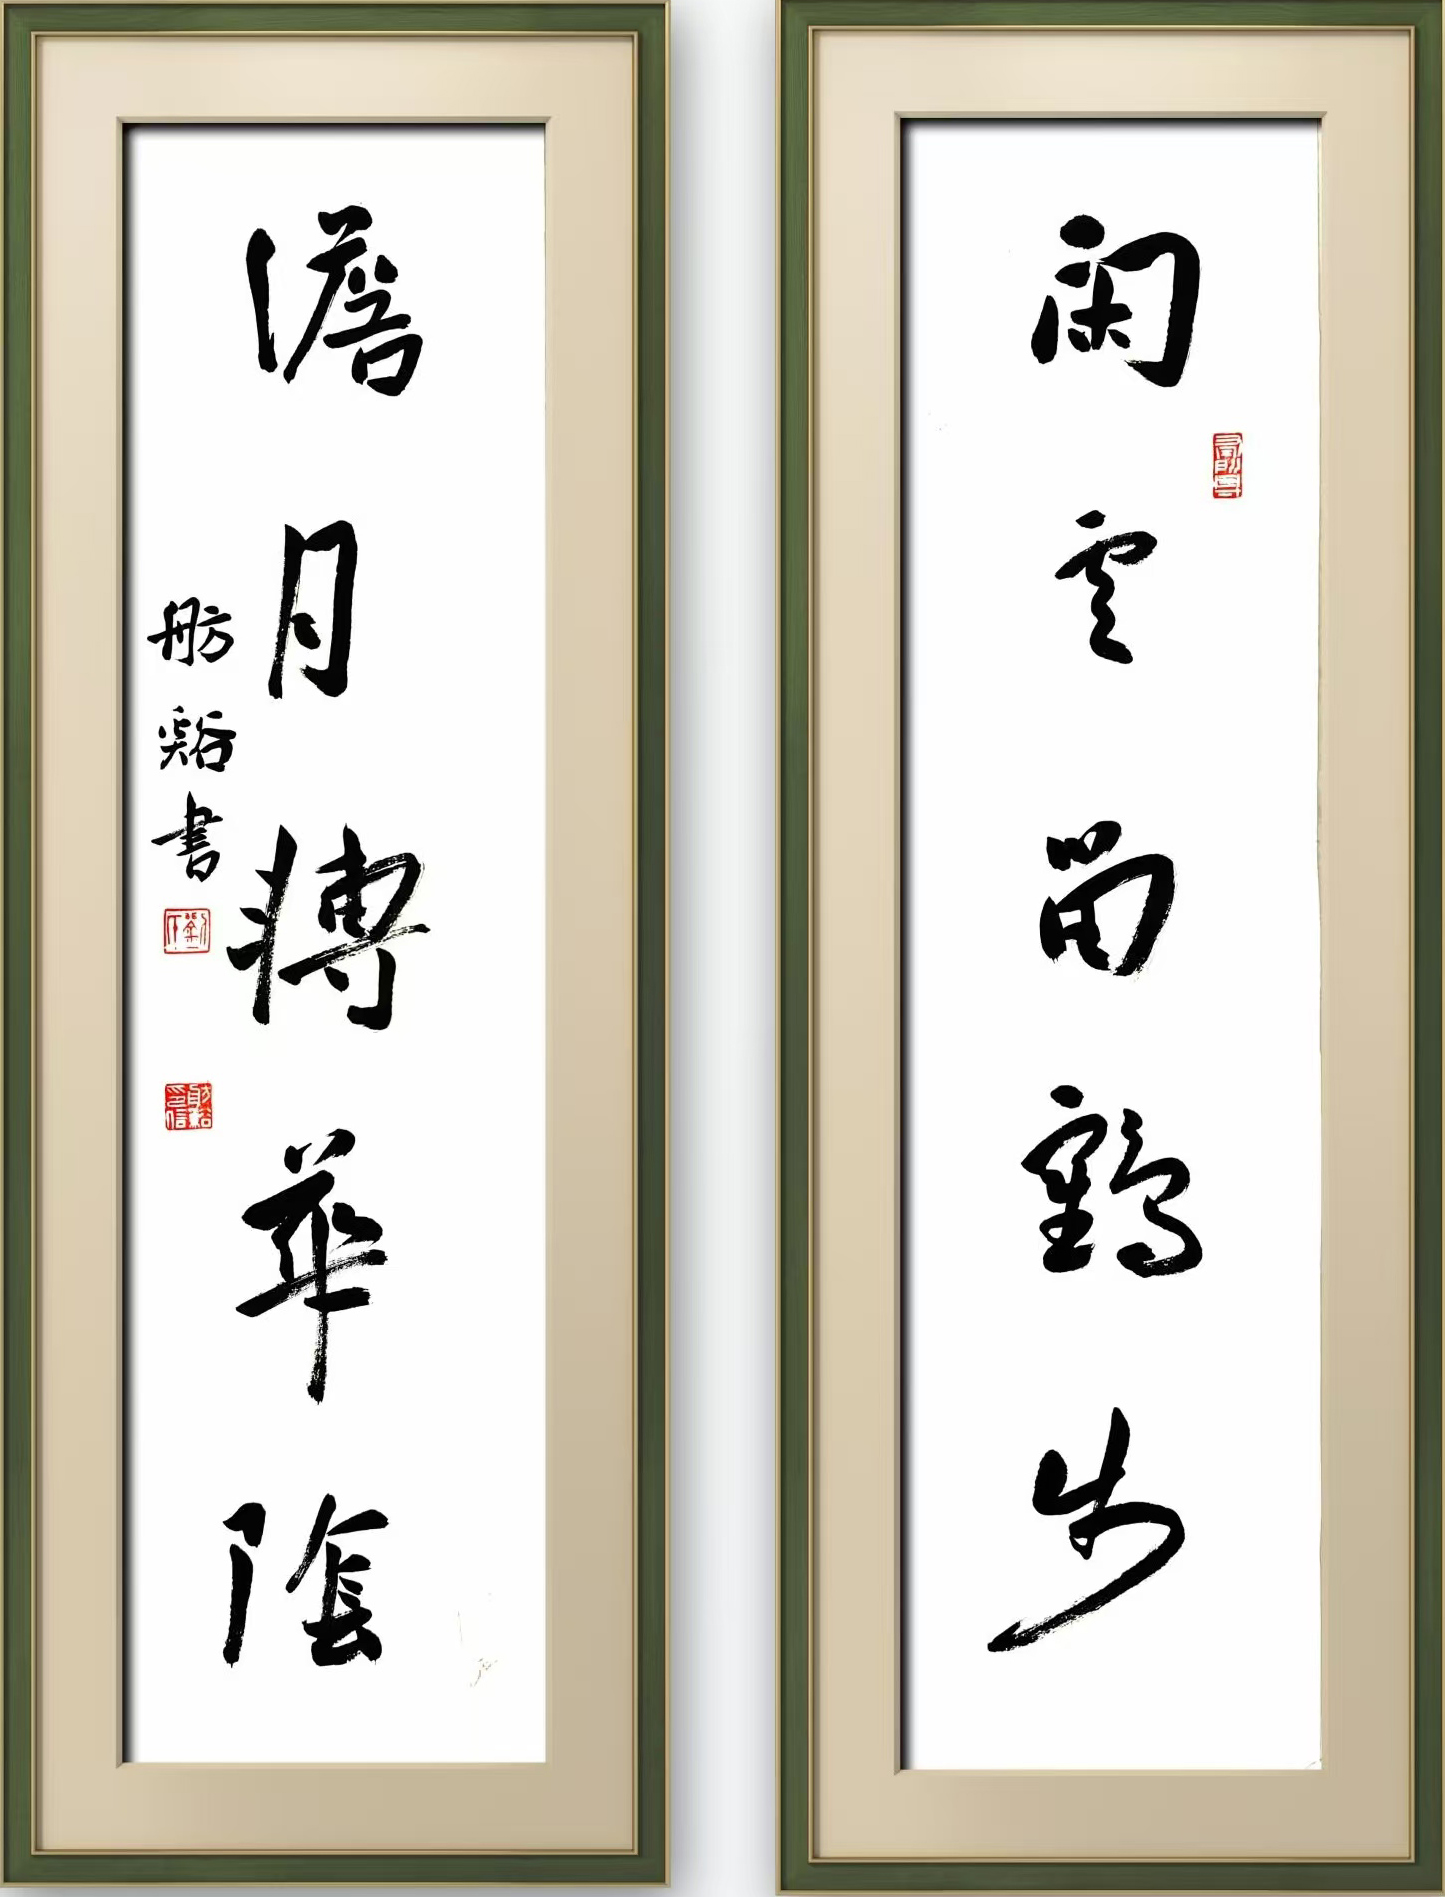 閑雲留鶴步
澹月轉華陰
舫谿書